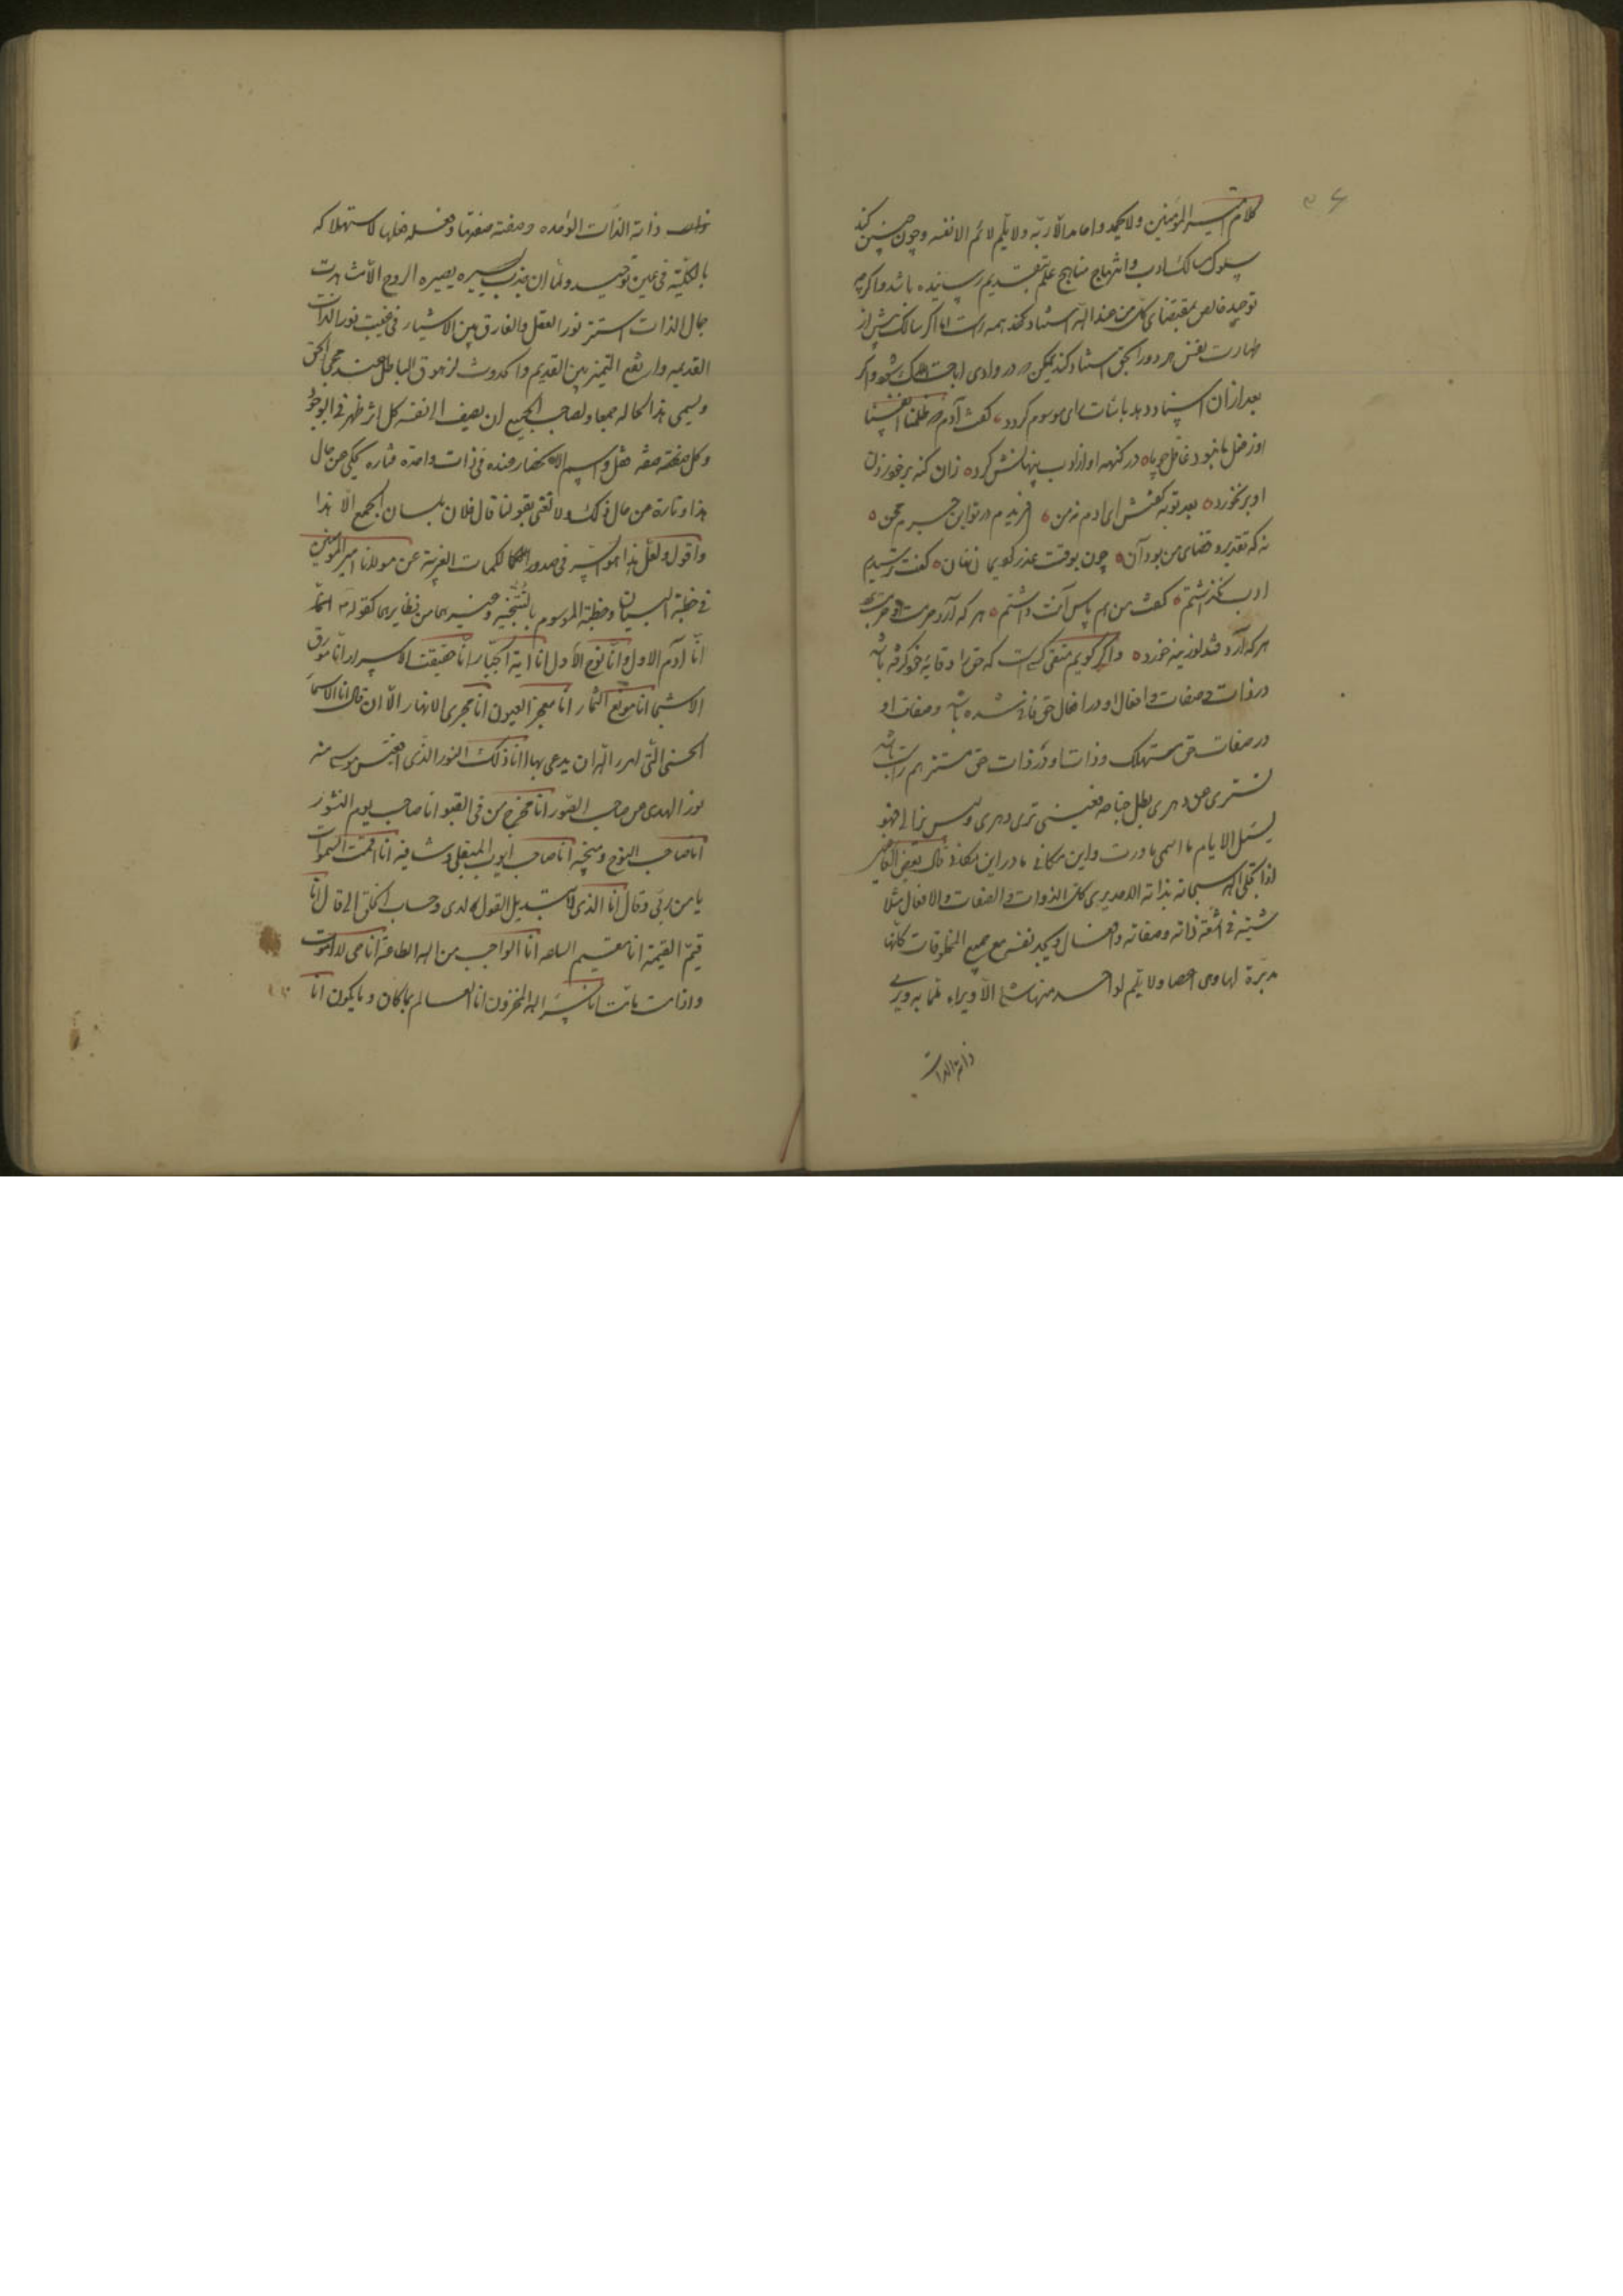 کلام امیر المؤمنین ولا یحمد حامد الا ربه ولا یلم لائم الا نفسه وچون چنین کند
سلوک مسالک ادب وانتهاج مناهج علم بتقدیم رسانیده باشد واگرچه
توحید خالص بمقتضای کل من عند الله اسناد کند همه راست اما اگر سالک پیش از
طهارت نفس هر دو را بحق اسناد کند یمکن که در وادی اباحت هلاک شود واگر
بعد از آن اسناد دهد باسائت ادب موسوم گردد گفت آدم که ظلمنا انفسنا
او ز فعل ما نبود غافل چو ما در گنه او از ادب پنهانش کرد زان گنه بر خود زدن
او بر بخورد بعد توبه گفتش ای آدم نه من آفریدم در تو این جرم ومحن
نه که تقدیر وقضای من بود آن چون بوقت عذر کردی آن نهان گفت ترسیدم
ادب نگذاشتم گفت من هم پاس آنت داشتم هر که آرد حرمت او حرمت برد
هر که آرد قند لوزینه خورد واگر گویم متقی کسی است که حق را وقایه خود گرفته باشد
در ذات وصفات وافعال او در افعال حق فانی شده باشد وصفات او
در صفات حق مستهلک وذات او در ذات حق مستتر هم راست باشد
تسترت عن دهری بظل جناحه فعینی تری دهری ولیس یرانی فلو
تسئل الایام ما اسمی ما درت واین مکانی ما درین مکانی قال بعض العارفین
اذا تجلی الله سبحانه بذاته لاحد یری کل الذوات والصفات والافعال متلا
شیة فی اشعة ذاته وصفاته وافعاله ویجد نفسه مع جمیع المخلوقات کانها
مدبرة لها وهی اعضاؤها ولا یلم لواحد منها شئ الا ویراه ملما به ویری
ذاته الذات
ذاته الذات الواحده وصفته صفتها وفعله فعلها لاستهلاکه
بالکلیة فی عین التوحید ولما انجذب بصیرة الروح الی مشاهدة
جمال الذات استتر نور العقل والفارق بین الاشیاء فی غیبة نور الذات
القدیمه وارتفع التمییز بین القدیم والحدوث لزهوق الباطل عند مجئ الحق
ویسمی هذا الحاله جمعا ولصاحب الجمع ان یضیف الی نفسه کل اثر ظهر فی الوجود
وکل صفة وفعل واسم لانحصار عنده فی ذات واحدة فتارة یحکی عن حال
هذا وتارة عن حال ذلک ولا نعنی بقولنا قال فلان بلسان الجمع الا هذا
واقول ولعل هذا هو السر فی صدور الکلمات الغریبة عن مولانا امیر المؤمنین
فی خطبة البیان وخطبة الموسوم بالتتنجیه وغیرهما من نظایرهما کقوله
انا آدم الاول انا نوح الاول انا آیة الجبار انا حقیقت الاسرار انا مورق
الاشجار انا مونع الثمار انا مفجر العیون انا مجری الانهار الی ان قال انا الاسماء
الحسنی التی امر الله ان یدعی بها انا ذلک النور الذی اقتبس موسی منه
نور الهدی من صاحب الصور انا مخرج من فی القبور انا صاحب یوم النشور
انا صاحب النوح ومنجیه انا صاحب ایوب المبتلی وشافیه انا اقمت السموات
بامر ربی وقال انا الذی لا یتبدیل القول لدی وحساب الخلق الی قال انا
قیم القیمة انا مقیم الساعه انا الواجب من الله الطاعة انا حی لا اموت
واذا مت لم امت انا سر الله المخزون انا العالم بما کان وما یکون انا